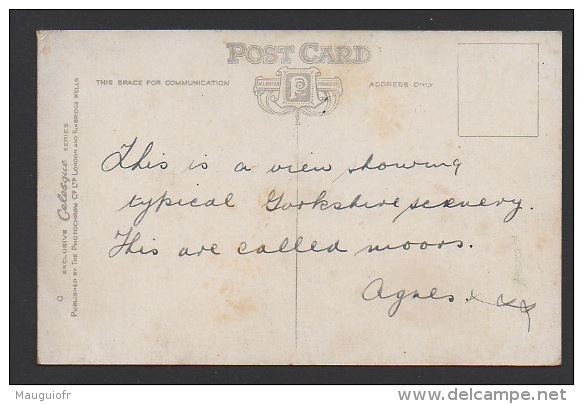 POST CARD
THIS SPACE FOR COMMUNICATION
ADDRESS ONLY
This is a view showing
typical Yorkshire scenery.
This are called moors.
Agnes. x x x
C EXCLUSIVE Celesque SERIES
PUBLISHED BY THE PHOTOCHROM CO LTD LONDON AND TUNBRIDGE WELLS
Mauguiofr
www.delcampe.net